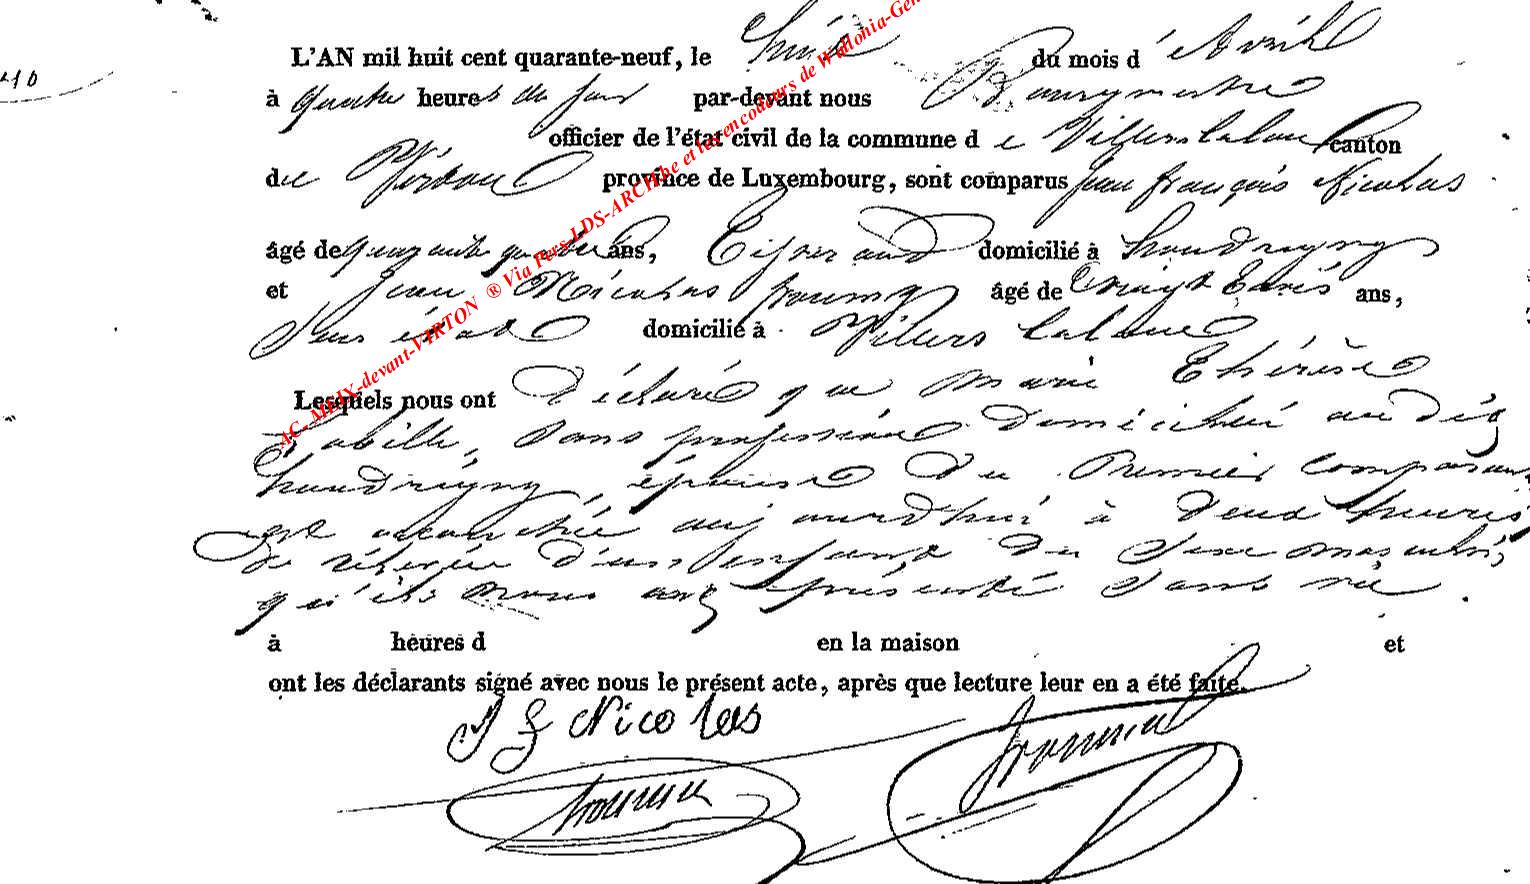 L'AN mil huit cent quarante-neuf, le huit du mois d'Avril
à quatre heures du soir par-devant nous Bourgmestre
officier de l'état civil de la commune de Villers la loue canton
de Virton province de Luxembourg, sont comparus jean françois Nicolas
âgé de quarante ans, Tisserand domicilié à houdrigny
et Jean Nicolas âgé de vingt trois ans,
Sans état domicilié à Villers la loue
Lesquels nous ont déclaré que marie Thérèse
sans profession domiciliée au dit
houdrigny, épouse du Premier comparant
est accouchée aujourd'hui à deux heures
de relevée d'un enfant du sexe masculin,
qu'ils nous ont présenté sans vie.
à heures d en la maison et
ont les déclarants signé avec nous le présent acte, après que lecture leur en a été faite.
J f Nicolas
AC- MEIX-devant-VIRTON ® Via Pers-LDS-ARCH.be et les encodeurs de Wallonia-Gen